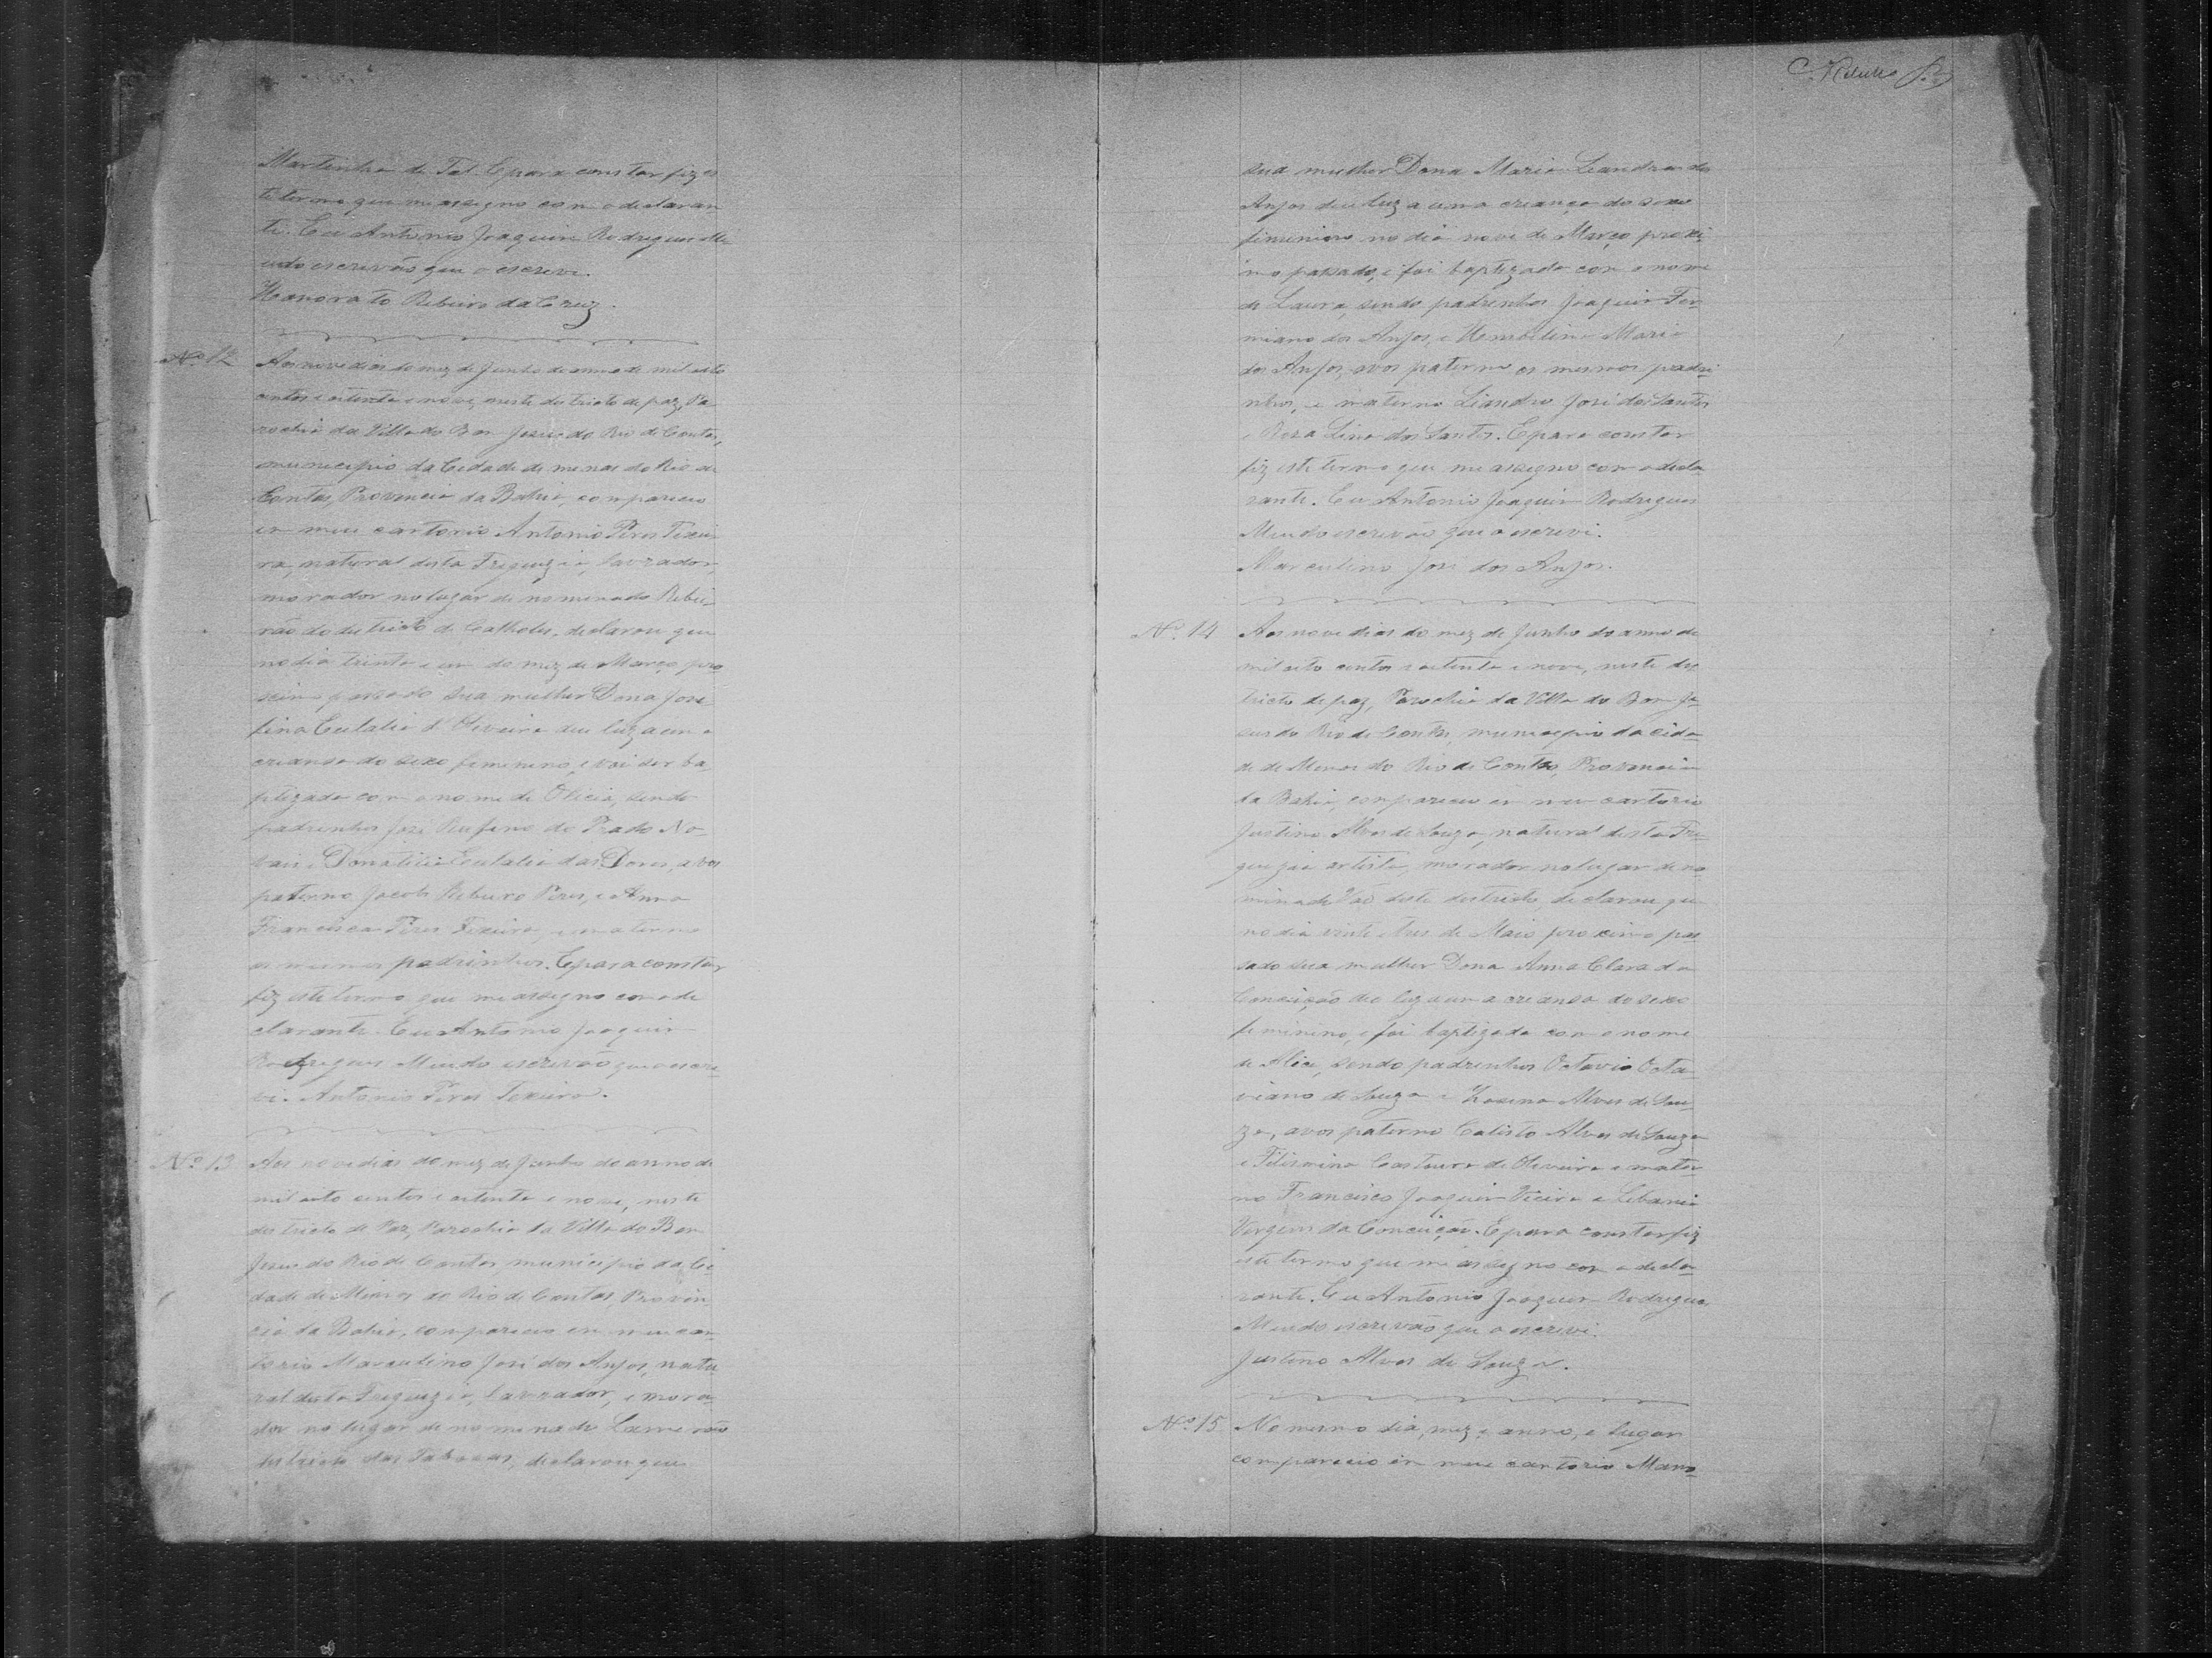 Martinho de Tal. E para constar fiz es
te termo que me assigno com o declaran
te. Eu Antonio Joaquim Rodrigues Mu
udo escrivão que o escrevi.
Honorato Ribeiro da Cruz.
Nº 12
Aos nove dias do mez de Junho do anno de mil oito
centos e oitenta e nove, neste destricto de paz, Pa
rochia da Villa do Bom Jesus do Rio de Contas,
municipio da Cidade de minas do Rio de
Contas, Provincia da Bahia, compareceo
em meu cartorio Antonio Pires Texei
ra, natural desta Freguezia, lavrador,
morador no lugar denominado Ribei
rão do destricto de Catholes, declarou que
no dia trinta e um do mez de Março pro
ximo passado sua mulher Dona Jose
fina Eulalia d'Oliveira deu luz a uma
creansa do sexo feminino, e vai ser ba
ptizada com o nome de Olicia, sendo
padrinhos José Rufino do Prado No
vais e Dona Eulalia das Dores, avos
paterno Jacob Ribeiro Pires, e Anna
Francisca Pires Texeira, e materno
os mesmos padrinhos. E para constar
fiz este termo que me assigno com o de
clarante. Eu Antonio Joaquim
Rodrigues Muudo escrivão que o escre
vi. Antonio Pires Texeira.
Nº 13
Aos nove dias do mez de Junho do anno de
mil oito centos e oitenta e nove, neste
destricto de Paz, Parochia da Villa do Bom
Jesus do Rio de Contas municipio da Ci
dade de Minas do Rio de Contas, Provin
cia da Bahia, compareceo em meu car
torio Marculino José dos Anjos, natu
ral desta Freguezia, lavrador, e mora
dor no lugar denominado Lameirão
destricto das Tabocas, declarou que
sua mulher Dona Maria Leandra dos
Anjos deu luz a uma creança do sexo
feminino no dia nove de Março proxi
mo passado, e foi baptizada com o nome
de Laura, sendo padrinhos Joaquim Fer
miano dos Anjos, e Maria
dos Anjos, avos paterno os mesmos padri
nhos, e materno Liandro José dos Santos
e Rosa Lina dos Santos. E para constar
fiz este termo que me assigno com o decla
rante. Eu Antonio Joaquim Rodrigues
Muudo escrivão que o escrevi.
Marculino José dos Anjos.
Nº 14
Aos nove dias do mez de Junho do anno de
mil oito centos e oitenta e nove, neste des
tricto de paz, Parochia da Villa do Bom Je
sus do Rio de Contas, municipio da cida
de de Minas do Rio de Contas, Provincia
da Bahia, compareceu em meu cartorio
Justino Alves de Souza, natural desta Fre
guezia artista, morador no lugar deno
minado Vao deste destricto, declarou que
no dia vinte e tres de Maio proximo pas
sado sua mulher Dona Anna Clara da
Conceição deo luz a uma creansa do sexo
feminino, e foi baptizada com o nome
de Alice, sendo padrinhos Octavio Octa
viano de Souza e Alves de Sou
za, avos paterno Calisto Alves de Souza
e Felismina de Oliveira e mater
no Francisco Joaquim Vieira e Libania
Virgem da Conceição. E para constar fiz
este termo que me assigno com o decla
rante. Eu Antonio Joaquim Rodrigues
Muudo escrivão que o escrevi.
Justino Alves de Souza.
Nº 15
No mesmo dia, mez e anno, e lugar
compareceo em meu cartorio Mano